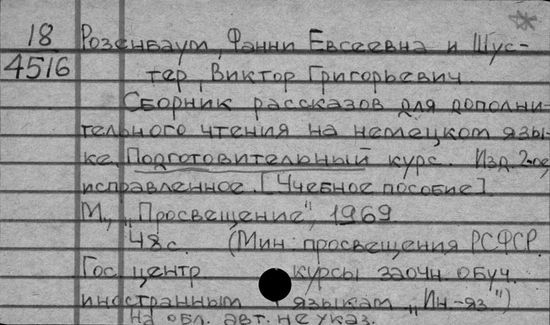 18
4516
Розенбаум, Фанни Евсеевна и Шус-
тер, Виктор Григорьевич.
Сборник рассказов для дополни-
тельного чтения на немецком язы-
ке. Подготовительный курс. Изд. 2-ое,
исправленное. [Учебное пособие]
М., "Просвещение", 1969
48 с. (Мин. просвещения РСФСР.
Гос. центр. курсы заочн. обуч.
иностранным языкам "Ин.-яз.")
На обл. авт. не указ.